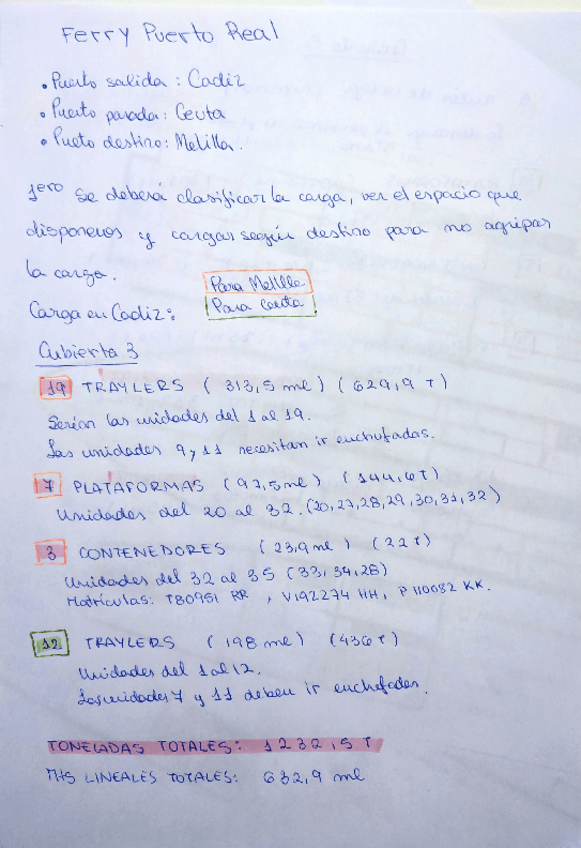 Ferry Puerto Real
• Puerto salida : Cadiz
• Puerto parada : Ceuta
• Pueto destino: Melilla.
1ero Se deberá clasificar la carga, ver el espacio que
disponemos y cargar según destino para no agripar
la carga.
Para Melilla
Para Ceuta
Carga en Cadiz :
Cubierta 3
19 TRAYLERS ( 313,5 ml ) ( 629,9 T )
Serían las unidades del 1 al 19.
Las unidades 9 y 11 necesitan ir enchufadas.
7 PLATAFORMAS ( 97,5 ml ) ( 144,6 T )
Unidades del 20 al 32. (20, 27, 28, 29, 30, 31, 32 )
3 CONTENEDORES ( 23,9 ml ) ( 22 T )
Unidades del 32 al 35 (33, 34, 28)
Matrículas: T80951 RR , V192274 HH, P110082 KK.
12 TRAYLERS ( 198 ml ) ( 436 T )
Unidades del 1 al 12.
Las unidades 7 y 11 deben ir enchufadas.
TONELADAS TOTALES: 1232,5 T
MTS LINEALES TOTALES: 632,9 ml